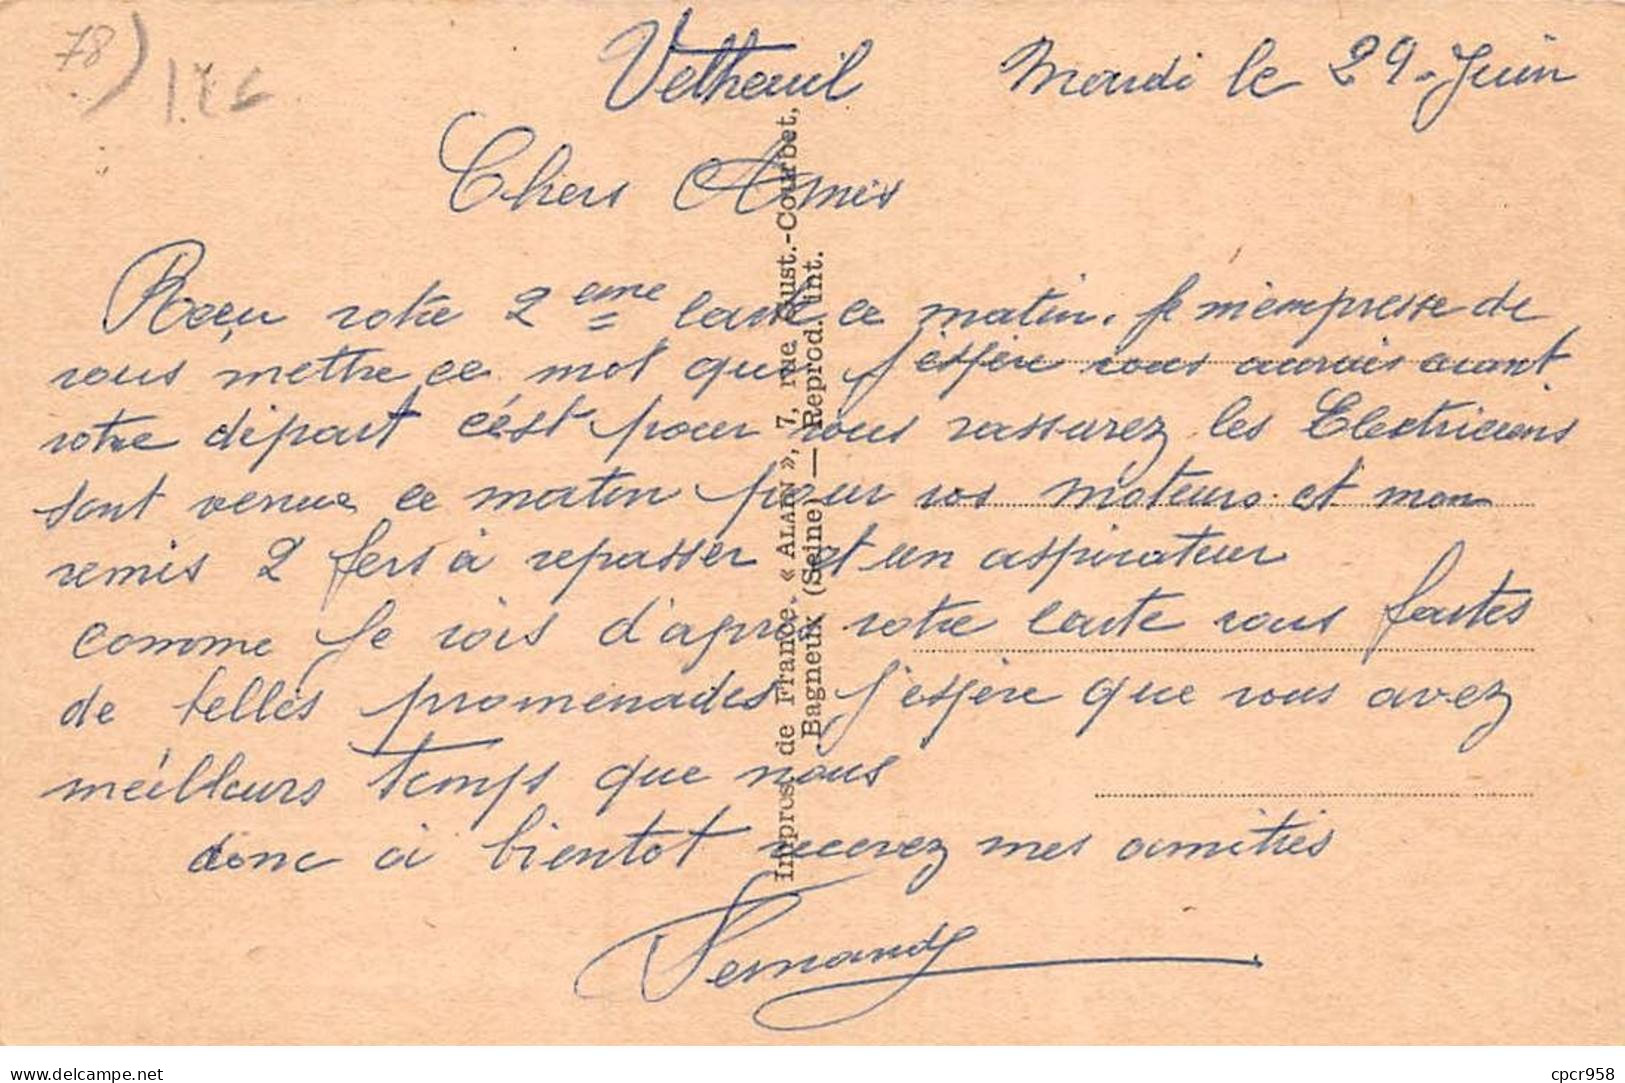 78)
Vetheuil Mardi le 29 Juin
Chers Amis
Reçu votre 2eme carte ce matin. Je m'empresse de
vous mettre ce mot que j'espère vous aurais avant
votre départ c'est pour vous rassurez les Electriciens
sont venue ce matin pour vos moteurs et mon
remis 2 fers à repasser et un aspirateur
comme Je vois d'après votre carte vous faites
de telles promenades j'espère que vous avez
meilleurs temps que nous
donc à bientot recevez mes amitiés
Fernand
Impres. de France « ALAIN », 7, rue Gust.-Courbet,
Bagneux (Seine) — Reprod. int.
www.delcampe.net
cpcr958